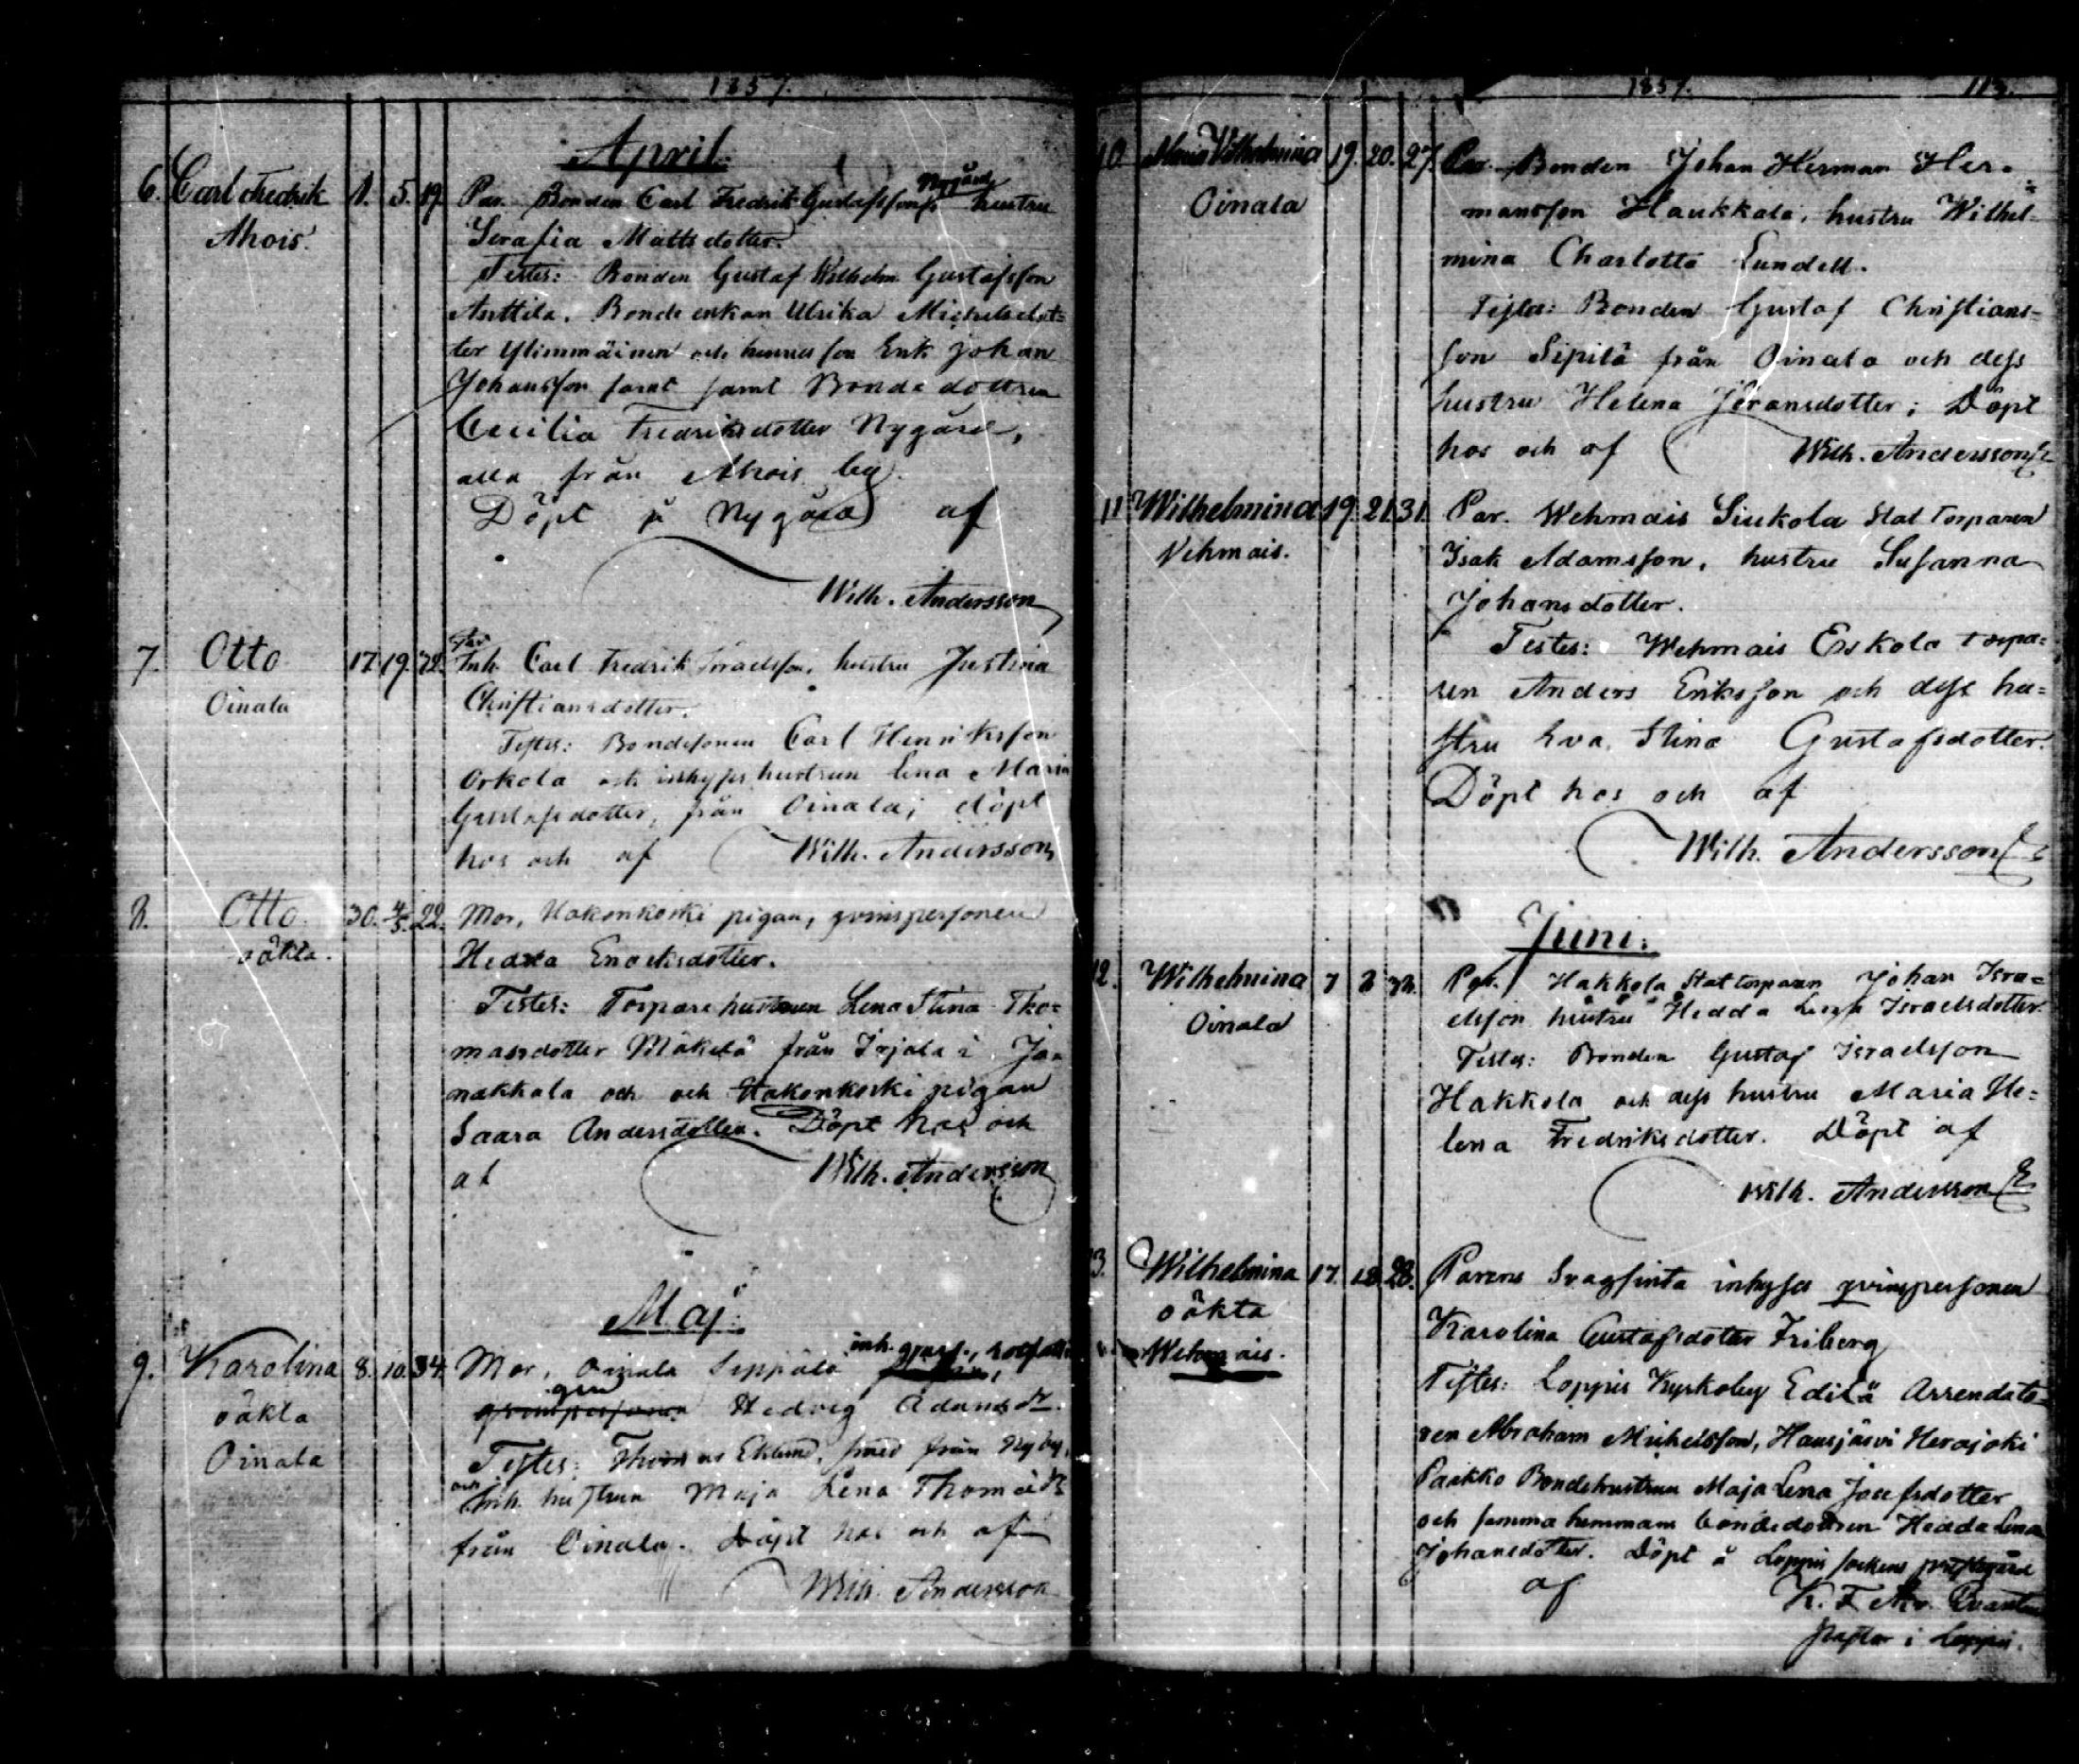 1857.
April.
6. Carl Fredrik 1. 5. 19. Par. Bonden Carl Fredrik Gustafsson Nygård hustru
Ahois. Serafia Mattsdotter.
Testes: Bonden Gustaf Wilhelm Gustafsson
Anttila. Bonde enkan Ulrika Michelsdot=
ter Ylimmäinen och hennes son Enk. Johan
Johansson samt samt Bonde dottren
Cecilia Fredriksdotter Nygård,
alla från Ahois by.
Döpt på Nygård af
Wilh. Andersson
7. Otto 17. 19. Par
Inh. Carl Fredrik Israelsson, hustru Justina
Oinala Christiansdotter.
Testes: Bondesonen Carl Henriksson
Orkola och inhyses hustrun Lena Maria
Gustafsdotter, från Oinala; döpt
hos och af Wilh. Andersson
8. Otto 30. 4/5. 22. Mor, Hakonkoski pigan, qvinspersonen
oäkta. Hedda Enoksdotter.
Testes: Torpare hustrun Lena Stina Tho=
masdotter Mäkelä från Irjala i Ja=
nakkala och och Hakonkoski pigan
Saara Andersdotter. Döpt hos och
af Wilh. Andersson
Maj.
9. Karolina 8. 10. 34. Mor, Oinala Seppälä inh.
oäkta qvinspersonen Hedvig Adamsdr.
Oinala Testes: Thomas Eklund, smed från Nyby,
och inh. hustrun Maja Lena Thomasdr
från Oinala. Döpt hos och af
Wilh. Andersson
1857. 113.
10 Maria Wilhelmina 19. 20. 27. Par. Bonden Johan Herman Her=
Oinala mansson Haukkala, hustru Wilhel=
mina Charlotta Lundell.
Testes: Bonden Gustaf Christians=
son Sipilä från Oinala och dess
hustru Helena Jöransdotter; Döpt
hos och af Wilh. Andersson
11 Wilhelmina 19. 21. 31. Par. Wehmais Siukola Stat torparen
Vehmais. Isak Adamsson, hustru Susanna
Johansdotter.
Testes: Wehmais Eskola torpa=
ren Anders Eriksson och dess hu=
stru Eva Stina Gustafsdotter.
Döpt hos och af
Wilh. Andersson
Juni.
12. Wilhelmina 7 Par. Hakkola Stat torparen Johan Isra=
Oinala elsson hustru Hedda Lena Israelsdotter.
Testes: Bonden Gustaf Israelsson
Hakkola och dess hustru Maria He=
lena Fredriksdotter. Döpt af
Wilh. Andersson
3. Wilhelmina 17. 18. 28. Parens Svagsinta inhyses qvinspersonen
oäkta Karolina Gustafsdotter Friberg
Wehmais. Testes: Loppis Kyrkoby Edilä Arrendato=
ren Abraham Mickelsson, Hausjärvi Herajoki
Paakko Bondehustrun Maja Lena Josefsdotter
och samma hemmans bondedottren Hedda Lena
Johansdotter. Döpt å Loppis sockens prestgård
af K. F.
pastor i Loppis.